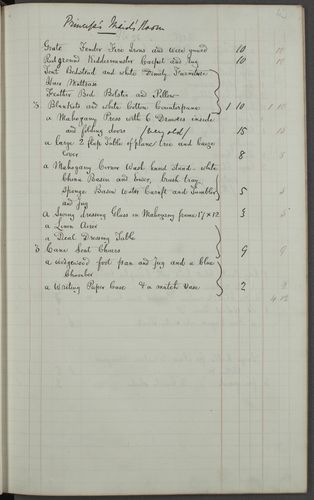 Princess's Maid's Room
Grate Fender Fire Irons and wire guard 10 10
Red ground Kidderminster Carpet and rug 10 10
Tent Bedstead and white Dimity Furniture
Hair Mattrass
Feather Bed Bolster and Pillow
3 Blankets and white Cotton Counterpane 1 10 1 10
a Mahogany Press with 6 Drawers inside
and folding doors (very old) 15 15
a large 2 flap Table and baize
Cover 8 8
a Mahogany Corner Wash hand stand white
China Basin and brush tray
Sponge Basin Water Caraft and Tumbler 5 5
and Jug
a Swing dressing Glass in Mahogany frame 15 x 12 3 3
a Linen
a Deal Dressing Table
3 Cane Seat Chairs 9 9
a Wedgewood foot pan and Jug and a blue
Chamber
a Writing Paper Case & a match Vase 2 2
4 12